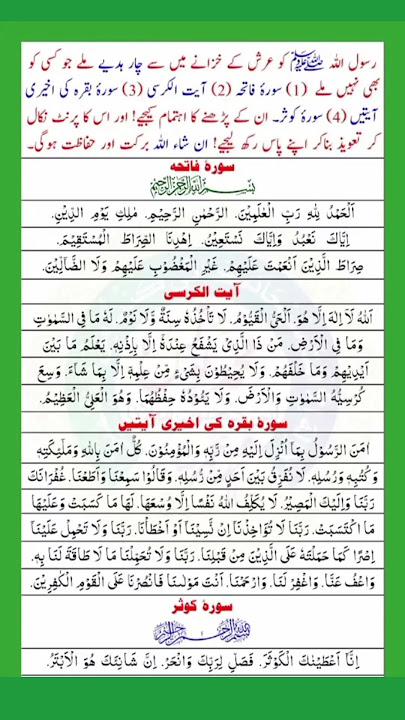 رسول اللہ ﷺ کو عرش کے خزانے میں سے چار ہدیے ملے جو کسی کو
بھی نہیں ملے (1) سورۂ فاتحہ (2) آیت الکرسی (3) سورۂ بقرہ کی اخیری
آیتیں (4) سورۂ کوثر۔ ان کے پڑھنے کا اہتمام کیجیے! اور اس کا پرنٹ نکال
کر تعویذ بنا کر اپنے پاس رکھ لیجیے! ان شاء اللہ برکت اور حفاظت ہوگی۔
سورۂ فاتحه
بِسْمِ اللهِ الرَّحْمٰنِ الرَّحِيْمِ
اَلْحَمْدُ لِلّٰهِ رَبِّ الْعٰلَمِيْنَ. الرَّحْمٰنِ الرَّحِيْمِ. مٰلِكِ يَوْمِ الدِّيْنِ.
اِيَّاكَ نَعْبُدُ وَاِيَّاكَ نَسْتَعِيْنُ. اِهْدِنَا الصِّرَاطَ الْمُسْتَقِيْمَ.
صِرَاطَ الَّذِيْنَ اَنْعَمْتَ عَلَيْهِمْ. غَيْرِ الْمَغْضُوْبِ عَلَيْهِمْ وَلَا الضَّالِّيْنَ.
آیت الکرسی
اَللهُ لَآ اِلٰهَ اِلَّا هُوَ. اَلْحَيُّ الْقَيُّوْمُ. لَا تَاْخُذُهٗ سِنَةٌ وَّلَا نَوْمٌ. لَهٗ مَا فِي السَّمٰوٰتِ
وَمَا فِي الْاَرْضِ. مَنْ ذَا الَّذِيْ يَشْفَعُ عِنْدَهٗٓ اِلَّا بِاِذْنِهٖ. يَعْلَمُ مَا بَيْنَ
اَيْدِيْهِمْ وَمَا خَلْفَهُمْ. وَلَا يُحِيْطُوْنَ بِشَيْءٍ مِّنْ عِلْمِهٖٓ اِلَّا بِمَا شَآءَ. وَسِعَ
كُرْسِيُّهُ السَّمٰوٰتِ وَالْاَرْضَ. وَلَا يَئُوْدُهٗ حِفْظُهُمَا. وَهُوَ الْعَلِيُّ الْعَظِيْمُ.
سورۂ بقرہ کی اخیری آیتیں
اٰمَنَ الرَّسُوْلُ بِمَآ اُنْزِلَ اِلَيْهِ مِنْ رَّبِّهٖ وَالْمُؤْمِنُوْنَ. كُلٌّ اٰمَنَ بِاللهِ وَمَلٰٓئِكَتِهٖ
وَكُتُبِهٖ وَرُسُلِهٖ. لَا نُفَرِّقُ بَيْنَ اَحَدٍ مِّنْ رُّسُلِهٖ. وَقَالُوْا سَمِعْنَا وَاَطَعْنَا. غُفْرَانَكَ
رَبَّنَا وَاِلَيْكَ الْمَصِيْرُ. لَا يُكَلِّفُ اللهُ نَفْسًا اِلَّا وُسْعَهَا. لَهَا مَا كَسَبَتْ وَعَلَيْهَا
مَا اكْتَسَبَتْ. رَبَّنَا لَا تُؤَاخِذْنَآ اِنْ نَّسِيْنَآ اَوْ اَخْطَاْنَا. رَبَّنَا وَلَا تَحْمِلْ عَلَيْنَآ
اِصْرًا كَمَا حَمَلْتَهٗ عَلَى الَّذِيْنَ مِنْ قَبْلِنَا. رَبَّنَا وَلَا تُحَمِّلْنَا مَا لَا طَاقَةَ لَنَا بِهٖ.
وَاعْفُ عَنَّا. وَاغْفِرْ لَنَا. وَارْحَمْنَا. اَنْتَ مَوْلٰىنَا فَانْصُرْنَا عَلَى الْقَوْمِ الْكٰفِرِيْنَ.
سورۂ کوثر
بسم الله الرحمن الرحيم
اِنَّآ اَعْطَيْنٰكَ الْكَوْثَرَ. فَصَلِّ لِرَبِّكَ وَانْحَرْ. اِنَّ شَانِئَكَ هُوَ الْاَبْتَرُ.